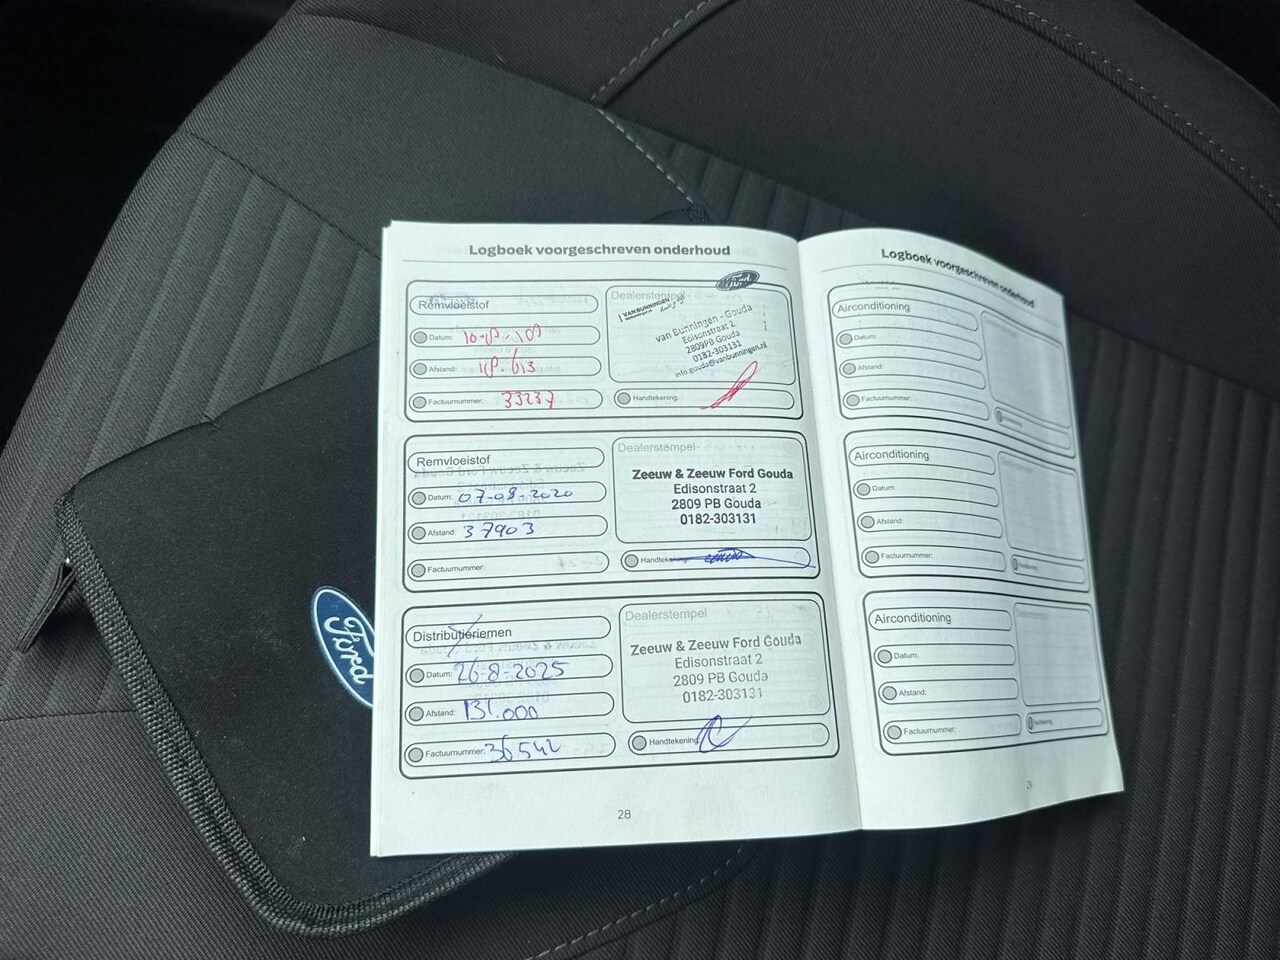 Logboek voorgeschreven onderhoud
Remvloeistof
Datum: 10-8-18
Afstand: 18.613
Factuurnummer: 33237
Dealerstempel
Ford
VAN BUNNINGEN
van Bunningen - Gouda
Edisonstraat 2
2809PB Gouda
0182-303131
info.gouda@vanbunningen.nl
Handtekening:
Remvloeistof
Datum: 07-08-2020
Afstand: 37903
Factuurnummer:
Dealerstempel
Zeeuw & Zeeuw Ford Gouda
Edisonstraat 2
2809 PB Gouda
0182-303131
Handtekening:
Distributieriemen
Datum: 26-8-2025
Afstand: 131.000
Factuurnummer: 36542
Dealerstempel
Zeeuw & Zeeuw Ford Gouda
Edisonstraat 2
2809 PB Gouda
0182-303131
Handtekening:
28
Logboek voorgeschreven onderhoud
Airconditioning
Datum:
Afstand:
Factuurnummer:
Airconditioning
Datum:
Afstand:
Factuurnummer:
Airconditioning
Datum:
Afstand:
Factuurnummer:
29
Ford